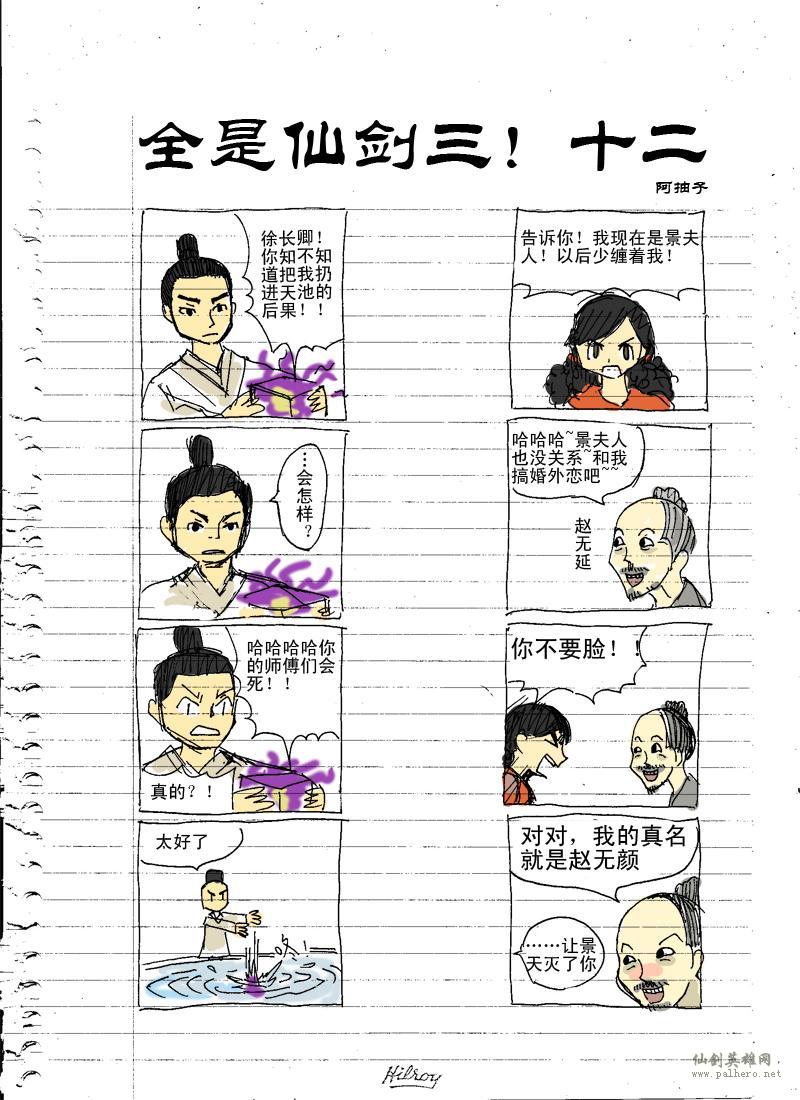 全是仙剑三！十二
阿抽子
徐长卿！
你知不知
道把我扔
进天池的
后果！！
…会怎样？
哈哈哈哈你
的师傅们会
死！！
真的？！
太好了
咚！
告诉你！我现在是景夫
人！以后少缠着我！
哈哈哈~景夫人
也没关系~和我
搞婚外恋吧~~
赵无延
你不要脸！！
对对，我的真名
就是赵无颜
……让景
天灭了你
Hilroy
仙剑英雄网
www.palhero.net